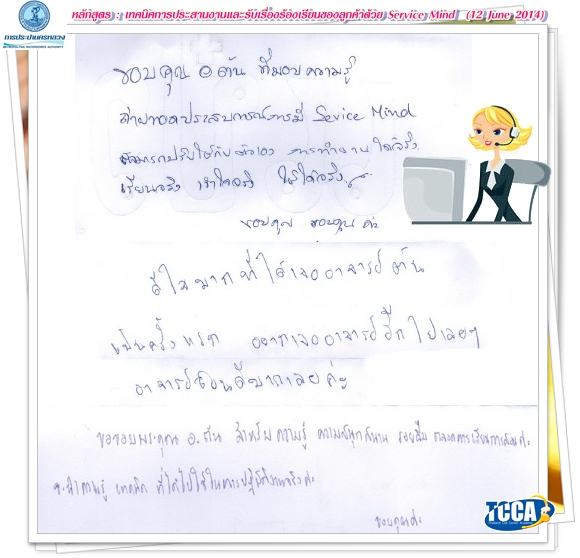 หลักสูตร : เทคนิคการประสานงานและรับเรื่องร้องเรียนของลูกค้าด้วย Service Mind (12 June 2014)
การประปานครหลวง
METROPOLITAN WATERWORKS AUTHORITY
ขอบคุณ อ.ต้น ที่มอบความรู้
ถ่ายทอดประสบการณ์การมี Sevice Mind
สามารถปรับใช้กับตัวเอง การทำงาน ได้จริง
เรียนจริง เข้าใจจริง ใช้ได้จริง
ขอบคุณ ขอบคุณ ค่ะ
ดีใจมากที่ได้เจออาจารย์ต้น
เป็นครั้งแรก อยากเจออาจารย์อีกไปเลยๆ
อาจารย์สอนดีมากเลยค่ะ
ขอขอบพระคุณ อ.ต้น สำหรับความรู้ ความสนุกสนาน รอยยิ้ม ตลอดการเรียนการสอนค่ะ
จะนำความรู้ เทคนิค ที่ได้ไปใช้ในการปฏิบัติงานจริงค่ะ
ขอบคุณค่ะ
TCCA